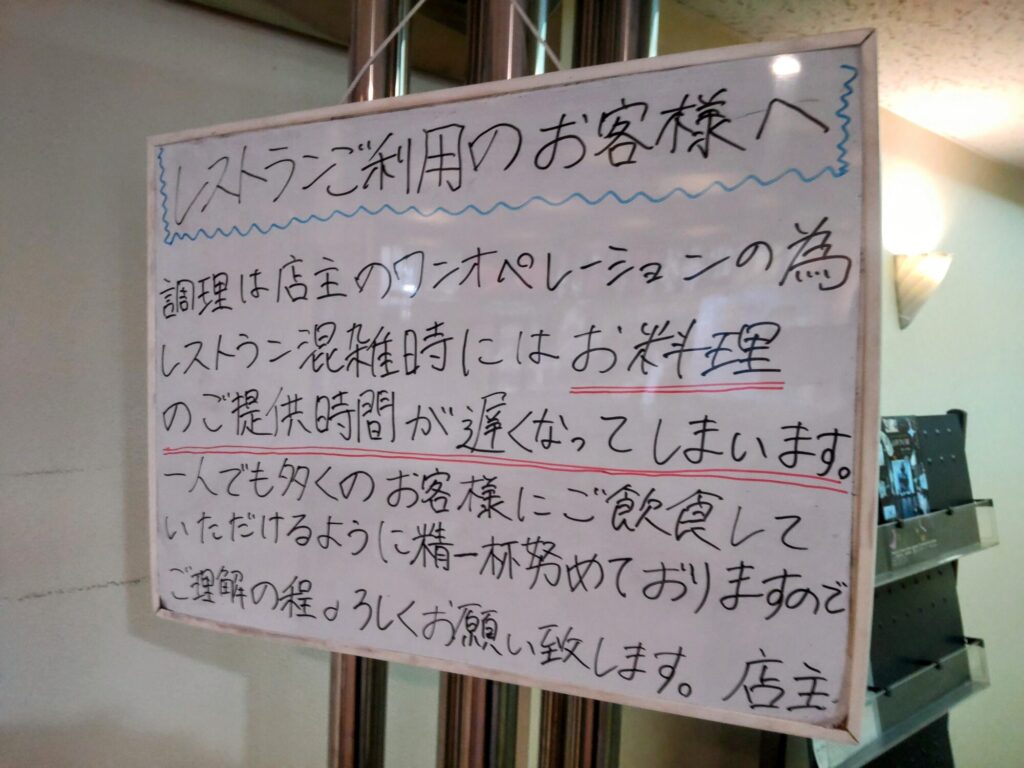 レストランご利用のお客様へ
調理は店主のワンオペレーションの為
レストラン混雑時にはお料理
のご提供時間が遅くなってしまいます。
一人でも多くのお客様にご飲食して
いただけるように精一杯努めておりますので
ご理解の程よろしくお願い致します。 店主